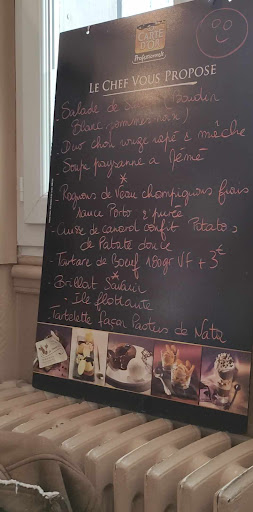 CARTE
D'OR
Professionnels
LE CHEF VOUS PROPOSE
- Salade de Boudin
Blanc, pommes noix)
- Duo chou rouge rapé & mâche
- Soupe paysanne a Jémé
*
- Rognons de Veau champignons frais
sauce Porto & purée
- Cuisse de canard confit Potatos
de Patate douce
- Tartare de Boeuf 180gr VF + 3€
*
- Brillat Savarin
- Ile flottante
- Tartelette façon Pasteis de Nata